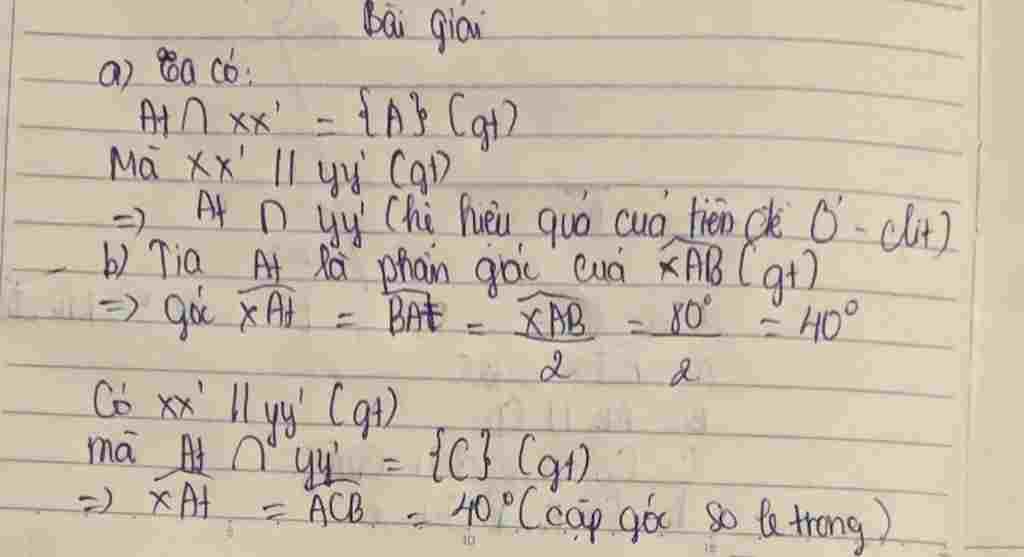 Bài giải
a) Ta có:
At ∩ xx' = {A} (gt)
Mà xx' // yy' (gt)
=> At ∩ yy' (hệ quả của tiên đề Ơ - clit)
b) Tia At là phân giác của xAB (gt)
=> góc xAt = BAt = xAB/2 = 80°/2 = 40°
Có xx' // yy' (gt)
mà At ∩ yy' = {C} (gt)
=> xAt = ACB = 40° (cặp góc so le trong)